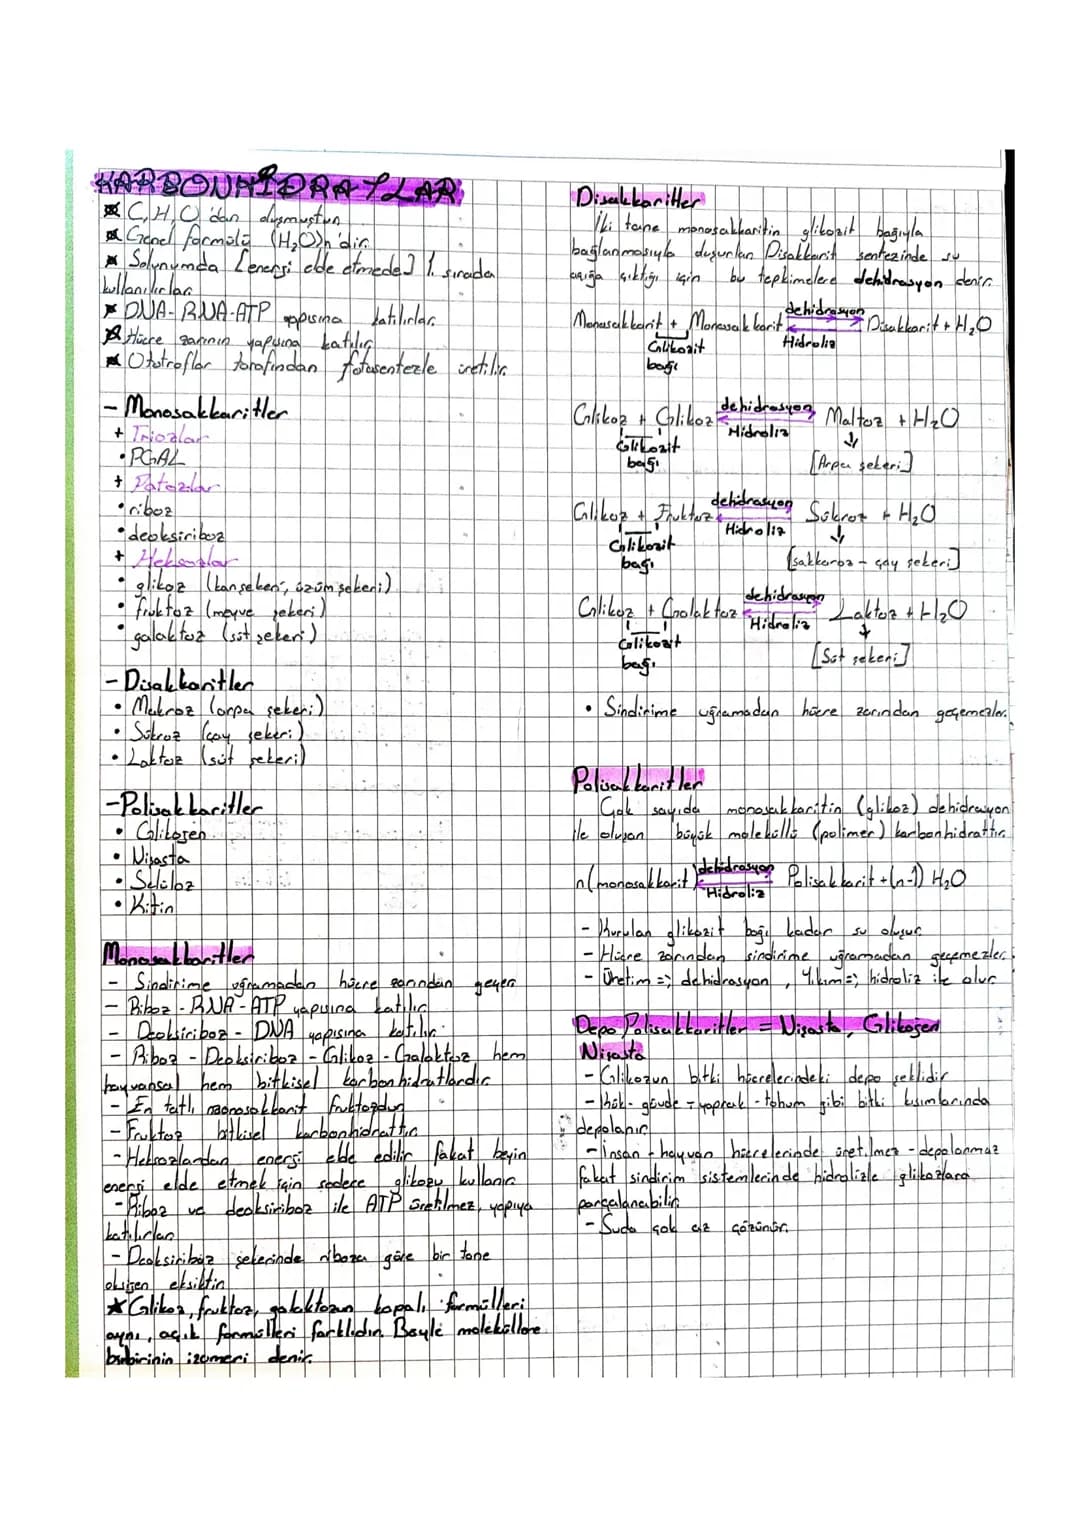 KARBONHİDRATLAR
C, H, O'dan oluşmuştur.
Genel formülü (H₂O)n'dir.
Solunumda [enerji elde etmede] 1. sırada
kullanılırlar.
DNA - RNA - ATP yapısına katılırlar.
Hücre zarının yapısına katılır.
Ototroflar tarafından fotosentezle üretilir.
- Monosakkaritler
+ Triozlar
• PGAL
+ Patozlar
• riboz
• deoksiriboz
+ Heksozlar
• glikoz (kan şekeri, üzüm şekeri)
• fruktoz (meyve şekeri)
• galaktoz (süt şekeri)
- Disakkaritler
• Makroz (arpa şekeri)
• Sükroz (çay şekeri)
• Laktoz (süt şekeri)
- Polisakkaritler
• Glikojen
• Nişasta
• Selüloz
• Kitin
Monosakkaritler
- Sindirime uğramadan hücre zarından geçer.
- Riboz - RNA - ATP yapısına katılır.
- Deoksiriboz - DNA yapısına katılır.
- Riboz - Deoksiriboz - Glikoz - Galaktoz hem
hayvansal hem bitkisel karbonhidratlardır.
- En tatlı monosakkarit fruktozdur.
- Fruktoz bitkisel karbonhidrattır.
- Heksozlardan enerji elde edilir fakat beyin
enerji elde etmek için sadece glikozu kullanır.
- Riboz ve deoksiriboz ile ATP üretilmez, yapıya
katılırlar.
- Deoksiriboz şekerinde riboza göre bir tane
oksijen eksiktir.
★ Glikoz, fruktoz, galaktozun kapalı formülleri
aynı, açık formülleri farklıdır. Böyle moleküllere
birbirinin izomeri denir.
Disakkaritler
İki tane monosakkaritin glikozit bağıyla
bağlanmasıyla oluşurlar. Disakkarit sentezinde su
açığa çıktığı için bu tepkimelere dehidrasyon denir.
Monosakkarit + Monosakkarit dehidrasyon Disakkarit + H₂O
Glikozit Hidroliz
bağı
Glikoz + Glikoz dehidrasyon Maltoz + H₂O
Glikozit Hidroliz
bağı [Arpa şekeri]
Glikoz + Fruktoz dehidrasyon Sükroz + H₂O
Glikozit Hidroliz
bağı [sakkaroz - çay şekeri]
Glikoz + Galaktoz dehidrasyon Laktoz + H₂O
Glikozit Hidroliz
bağı [Süt şekeri]
• Sindirime uğramadan hücre zarından geçemezler.
Polisakkaritler
Çok sayıda monosakkaritin (glikoz) dehidrasyon
ile oluşan büyük moleküllü (polimer) karbonhidrattır.
n(monosakkarit) dehidrasyon Polisakkarit + (n-1) H₂O
Hidroliz
- Kurulan glikozit bağı kadar su oluşur.
- Hücre zarından sindirime uğramadan geçemezler.
- Üretim => dehidrasyon, Yıkım => hidroliz ile olur.
Depo Polisakkaritler = Nişasta, Glikojen
Nişasta
- Glikozun bitki hücrelerindeki depo şeklidir
- kök - gövde - yaprak - tohum gibi bitki kısımlarında
depolanır.
- İnsan - hayvan hücrelerinde üretilmez - depolanmaz
fakat sindirim sistemlerinde hidrolizle glikozlara
parçalanabilir.
- Suda çok az çözünür.